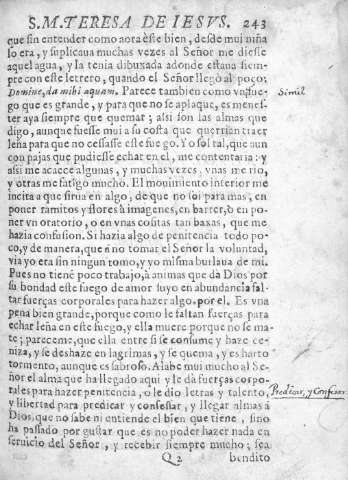 S. M. TERESA DE IESVS. 243
que sin entender como aora este bien, desde mui niña
lo era, y suplicaua muchas vezes al Señor me diesse
aquel agua, y la tenia dibuxada adonde estaua siem-
pre con este letrero, quando el Señor llegó al poço;
Domine, da mihi aquam. Parece tambien como vn fue-
go que es grande, y para que no se aplaque, es menes-
ter aya siempre que quemar; assi son las almas que
digo, aunque fuesse mui a su costa que querrian traer
leña para que no cessasse este fuego. Yo soi tal, que aun
con pajas que pudiesse echar en el, me contentaria: y
assi me acaece algunas, y muchas vezes, vnas me rio,
y otras me fatigo mucho. El mouimiento interior me
incita a que sirua en algo, de que no soi para mas, en
poner ramitos y flores à imagenes, en barrer, ò en po-
ner vn oratorio, o en vnas cositas tan baxas, que me
hazia confusion. Si hazia algo de penitencia todo po-
co, y de manera, que à no tomar el Señor la voluntad,
via yo era sin ningun tomo, y yo misma burlaua de mi.
Pues no tiené poco trabajo, à animas que dà Dios por
su bondad este fuego de amor suyo en abundancia fal-
tar fuerças corporales para hazer algo por el. Es vna
pena bien grande, porque como le faltan fuerças para
echar leña en este fuego, y ella muere porque no se ma-
te; pareceme, que ella entre si se consume y haze ce-
niza, y se deshaze en lagrimas, y se quema, y es harto
tormento, aunque es sabroso. Alabe mui mucho al Se-
ñor el alma que ha llegado aqui y le dà fuerças corpo-
rales para hazer penitencia, o le dio letras y talento,
y libertad para predicar y confessar, y llegar almas à
Dios, que no sabe ni entiende el bien que tiene, sino
ha passado por gustar que es no poder hazer nada en
seruicio del Señor, y recebir siempre mucho; sea
Q 2 bendito
Simil
Predicar, y Confesar